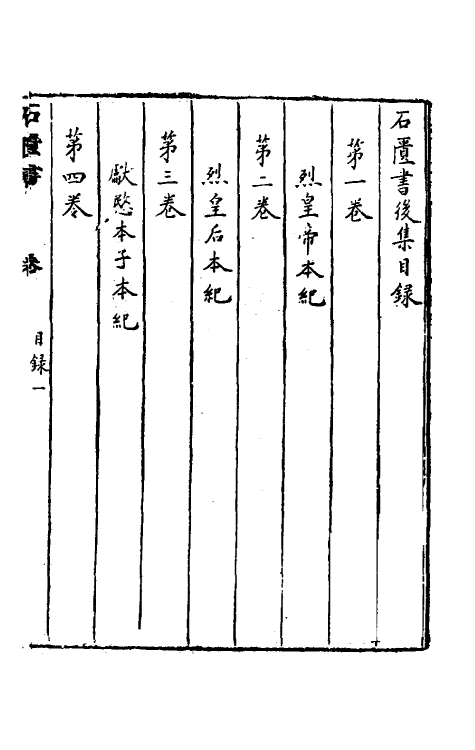 石匱書後集目録
第一卷
烈皇帝本紀
第二卷
烈皇后本紀
第三卷
獻愍本子本紀
第四卷
石匱書
卷
目録一